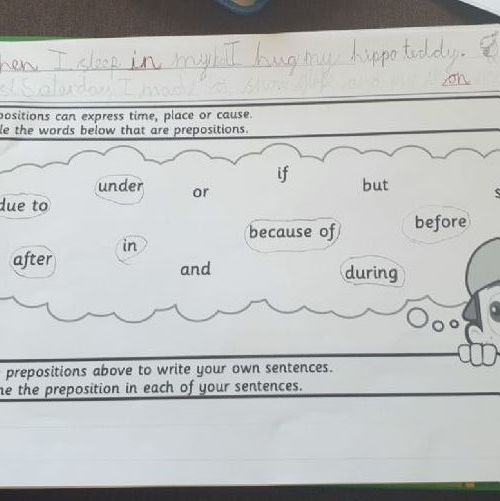 hen I sleep in my I hug my hippo teddy.
Saturday I made on
positions can express time, place or cause.
le the words below that are prepositions.
if
under or but s
due to
because of before
after in
and during
prepositions above to write your own sentences.
ne the preposition in each of your sentences.